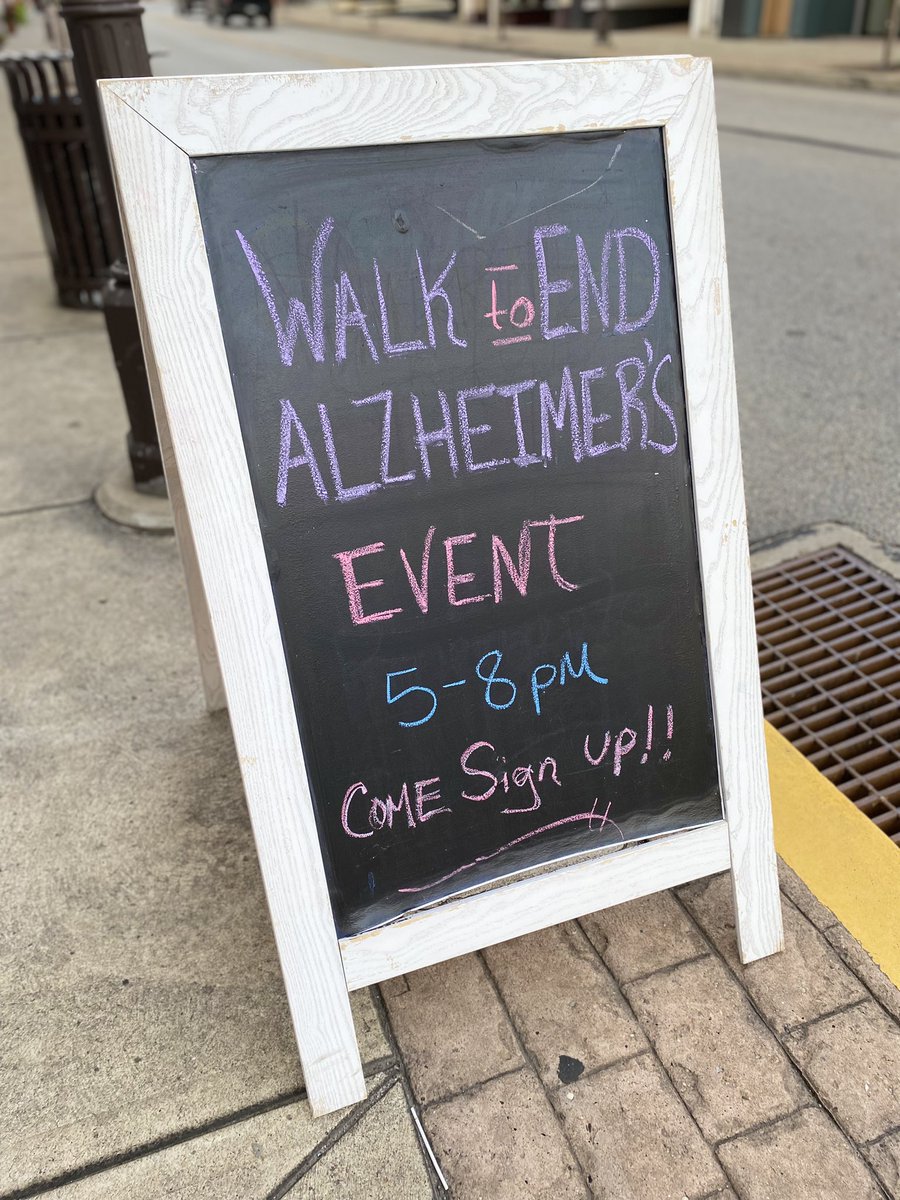 WALK to END
ALZHEIMER'S
EVENT
5-8pm
COME Sign up!!